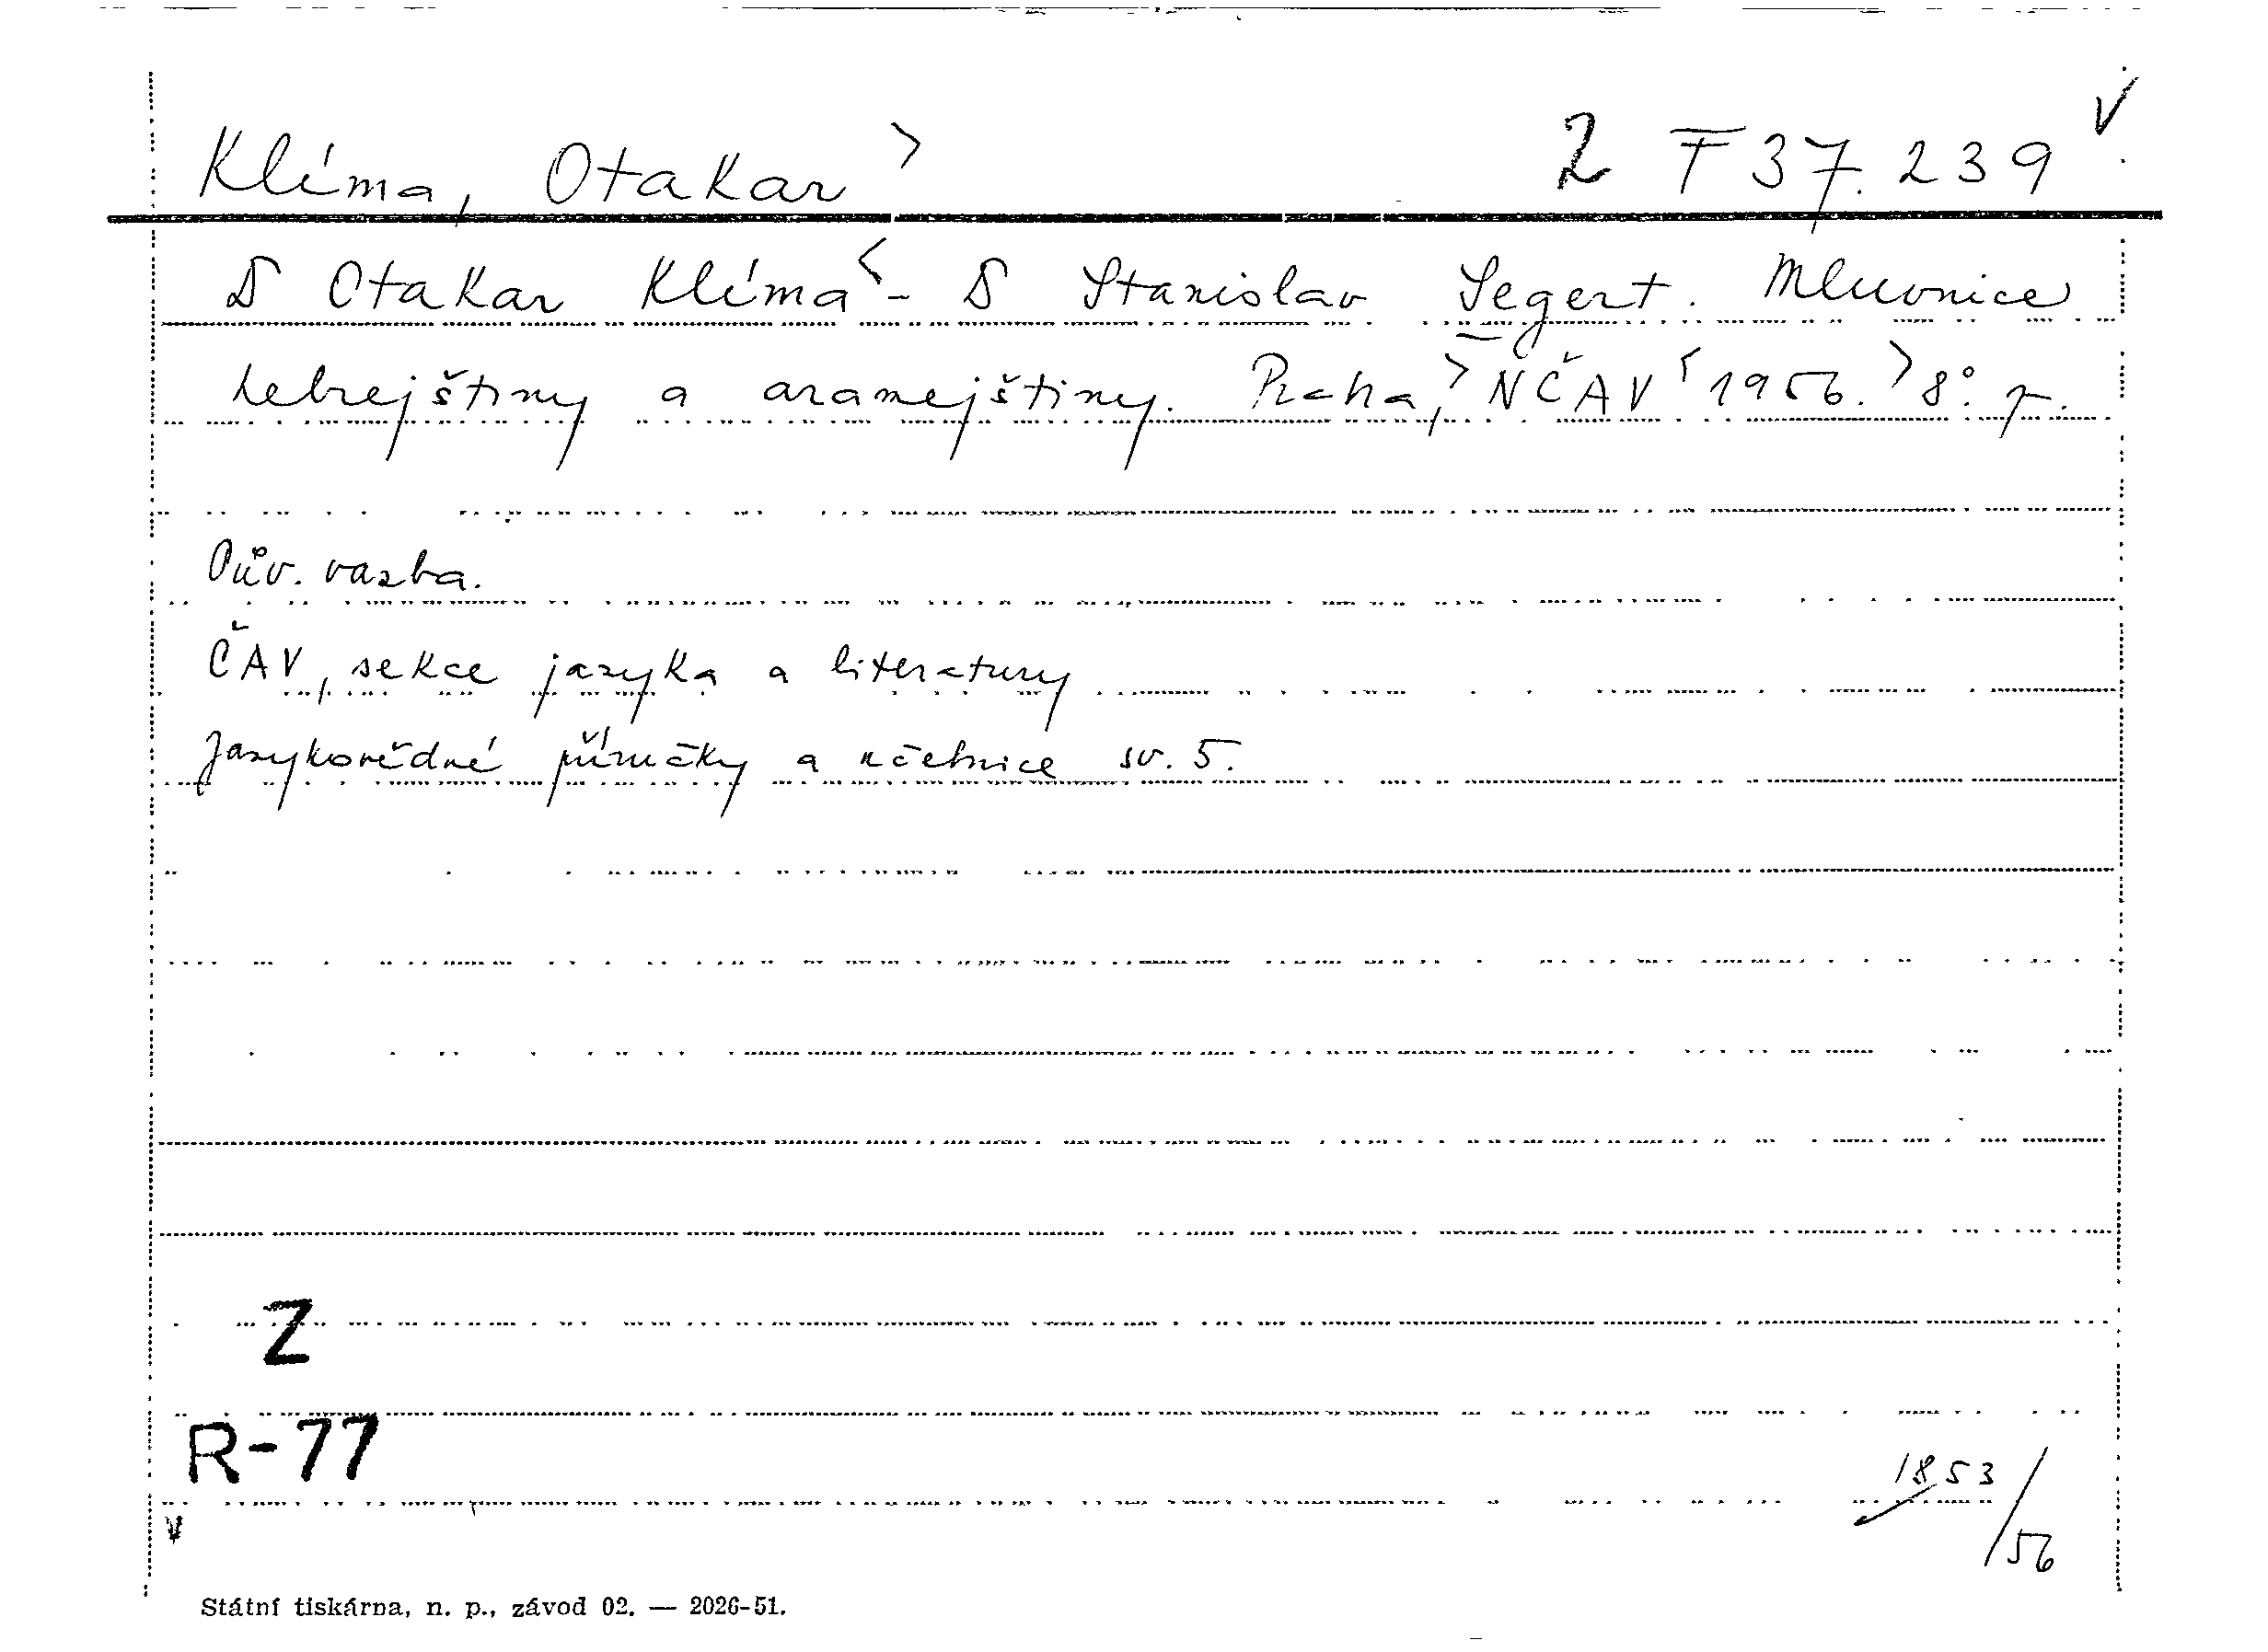 Klíma, Otakar > 2 T 37.239 V
D Otakar Klíma < - D Stanislav Segert. Mluvnice
hebrejštiny a aramejštiny. Praha, > NČAV < 1956. > 8°. p.
Pův. vazba.
ČAV, sekce jazyka a literatury
Jazykovědné příručky a učebnice sv. 5.
Z
R-77
1853/56
V
Státní tiskárna, n. p., závod 02. — 2026-51.